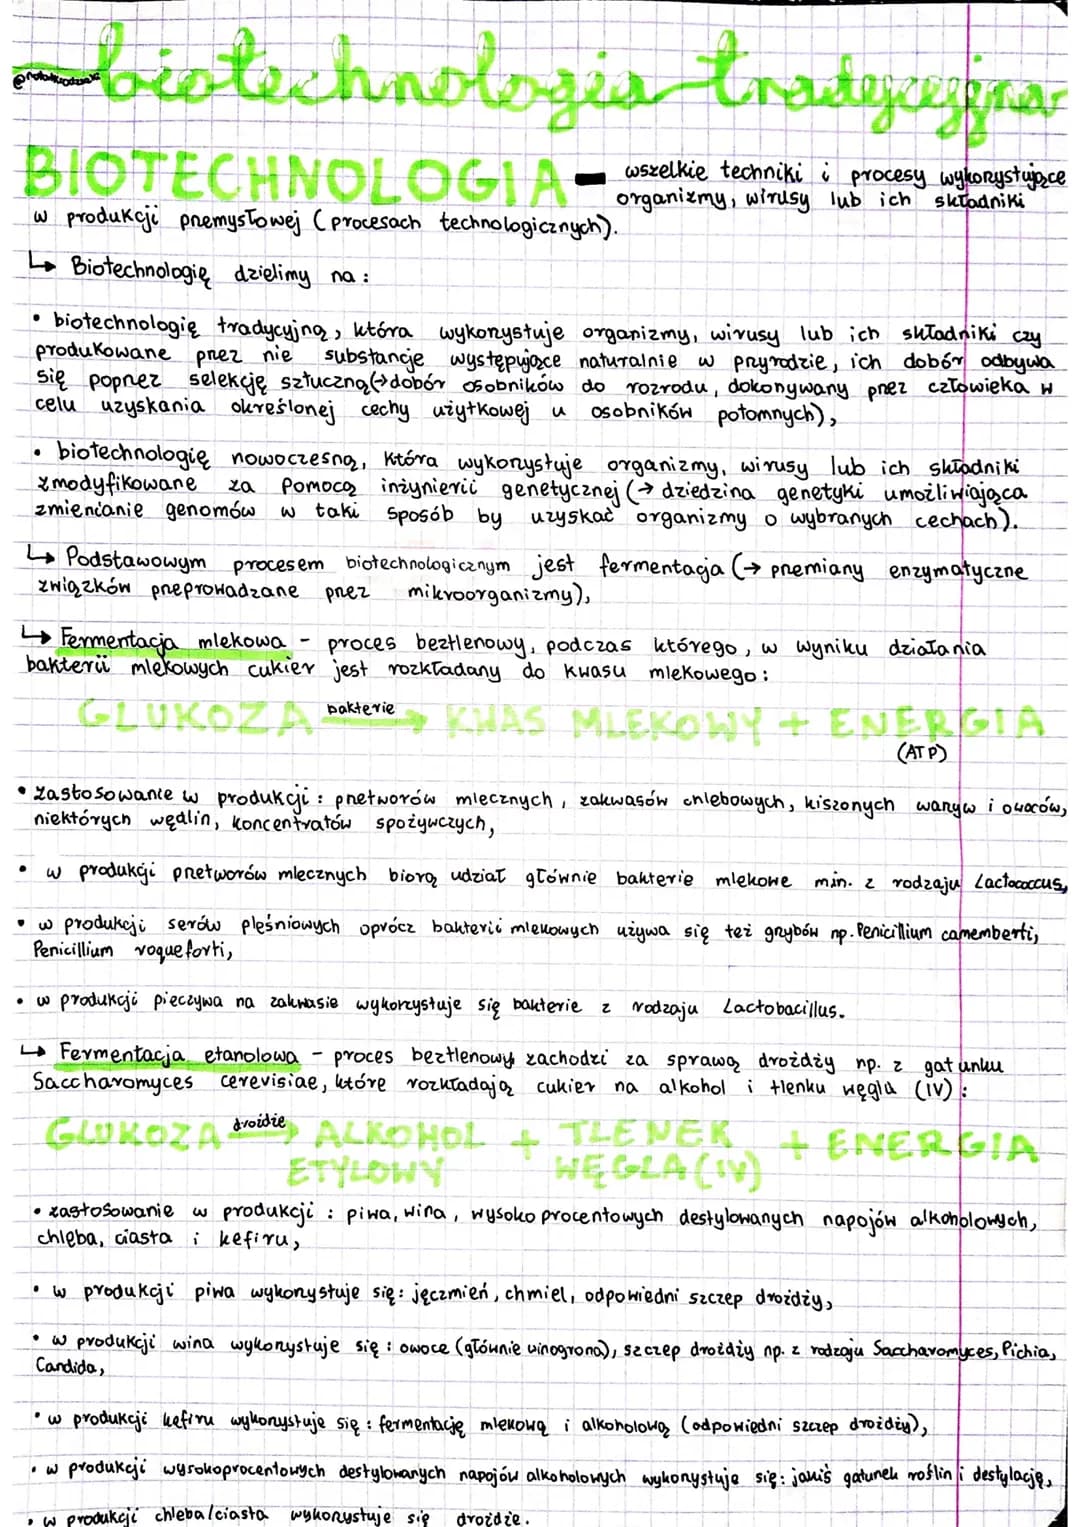 biotechnologia tradycyjna
BIOTECHNOLOGIA - wszelkie techniki i procesy wykorzystujące
organizmy, wirusy lub ich składniki
w produkcji przemysłowej (procesach technologicznych).
↳ Biotechnologię dzielimy na:
• biotechnologię tradycyjną, która wykorzystuje organizmy, wirusy lub ich składniki czy
produkowane przez nie substancje występujące naturalnie w przyrodzie, ich dobór odbywa
się poprzez selekcję sztuczną (→ dobór osobników do rozrodu, dokonywany przez człowieka w
celu uzyskania określonej cechy użytkowej u osobników potomnych),
• biotechnologię nowoczesną, która wykorzystuje organizmy, wirusy lub ich składniki
zmodyfikowane za pomocą inżynierii genetycznej (→ dziedzina genetyki umożliwiająca
zmienianie genomów w taki sposób by uzyskać organizmy o wybranych cechach).
↳ Podstawowym procesem biotechnologicznym jest fermentacja (→ przemiany enzymatyczne
związków przeprowadzane przez mikroorganizmy),
↳ Fermentacja mlekowa - proces beztlenowy, podczas którego, w wyniku działania
bakterii mlekowych cukier jest rozkładany do kwasu mlekowego:
GLUKOZA bakterie → KWAS MLEKOWY + ENERGIA
(ATP)
• zastosowanie w produkcji: przetworów mlecznych, zakwasów chlebowych, kiszonych warzyw i owoców,
niektórych wędlin, koncentratów spożywczych,
• w produkcji przetworów mlecznych biorą udział głównie bakterie mlekowe min. z rodzaju Lactococcus,
• w produkcji serów pleśniowych oprócz bakterii mlekowych używa się też grzybów np. Penicillium camemberti,
Penicillium roqueforti,
• w produkcji pieczywa na zakwasie wykorzystuje się bakterie z rodzaju Lactobacillus.
↳ Fermentacja etanolowa - proces beztlenowy zachodzi za sprawą drożdży np. z gatunku
Saccharomyces cerevisiae, które rozkładają cukier na alkohol i tlenku węgla (IV):
GLUKOZA drożdże → ALKOHOL + TLENEK + ENERGIA
ETYLOWY WĘGLA (IV)
• zastosowanie w produkcji: piwa, wina, wysoko procentowych destylowanych napojów alkoholowych,
chleba, ciasta i kefiru,
• w produkcji piwa wykorzystuje się: jęczmień, chmiel, odpowiedni szczep drożdży,
• w produkcji wina wykorzystuje się: owoce (głównie winogrona), szczep drożdży np. z rodzaju Saccharomyces, Pichia,
Candida,
• w produkcji kefiru wykorzystuje się: fermentację mlekową i alkoholową (odpowiedni szczep drożdży),
• w produkcji wysokoprocentowych destylowanych napojów alkoholowych wykorzystuje się: jakiś gatunek roślin i destylację,
• w produkcji chleba/ciasta wykorzystuje się drożdże.